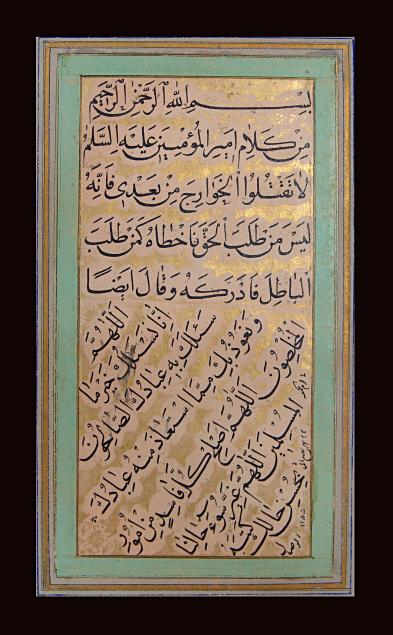 بسم الله الرحمن الرحيم
من كلام امير المؤمنين عليه السلم
لا تقتلوا الخوارج من بعدي فانه
ليس من طلب الحق فاخطاه كمن طلب
الباطل فادركه وقال ايضا
اللهم
انا نسئلك خير ما
سئلك به عبادك الصالحون
و نعوذ بك مما استعاذ منه عبادك
المخلصون اللهم اصلح كل فاسد من امور
المسلمين اللهم غير سوء حالنا
بحسن حالك كتبه